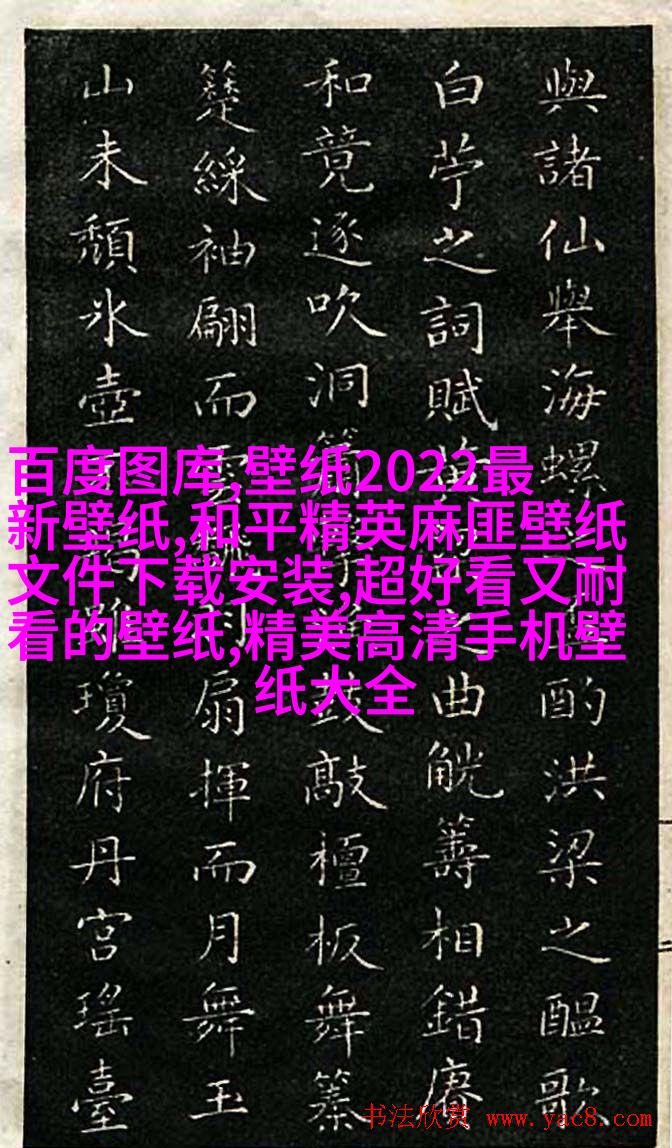 與諸仙舉海螺酌洪梁之醞歌
白苧之詞賦之曲觥籌相錯賡
和竟逐吹洞簫鼓敲檀板舞
綵袖翩而雲扇揮而月舞玉
山未頹氷壺瓊府丹宮瑤臺
百度图库,壁纸2022最
新壁纸,和平精英麻匪壁纸
文件下载安装,超好看又耐
看的壁纸,精美高清手机壁
纸大全
书法欣赏 www.yac8.com